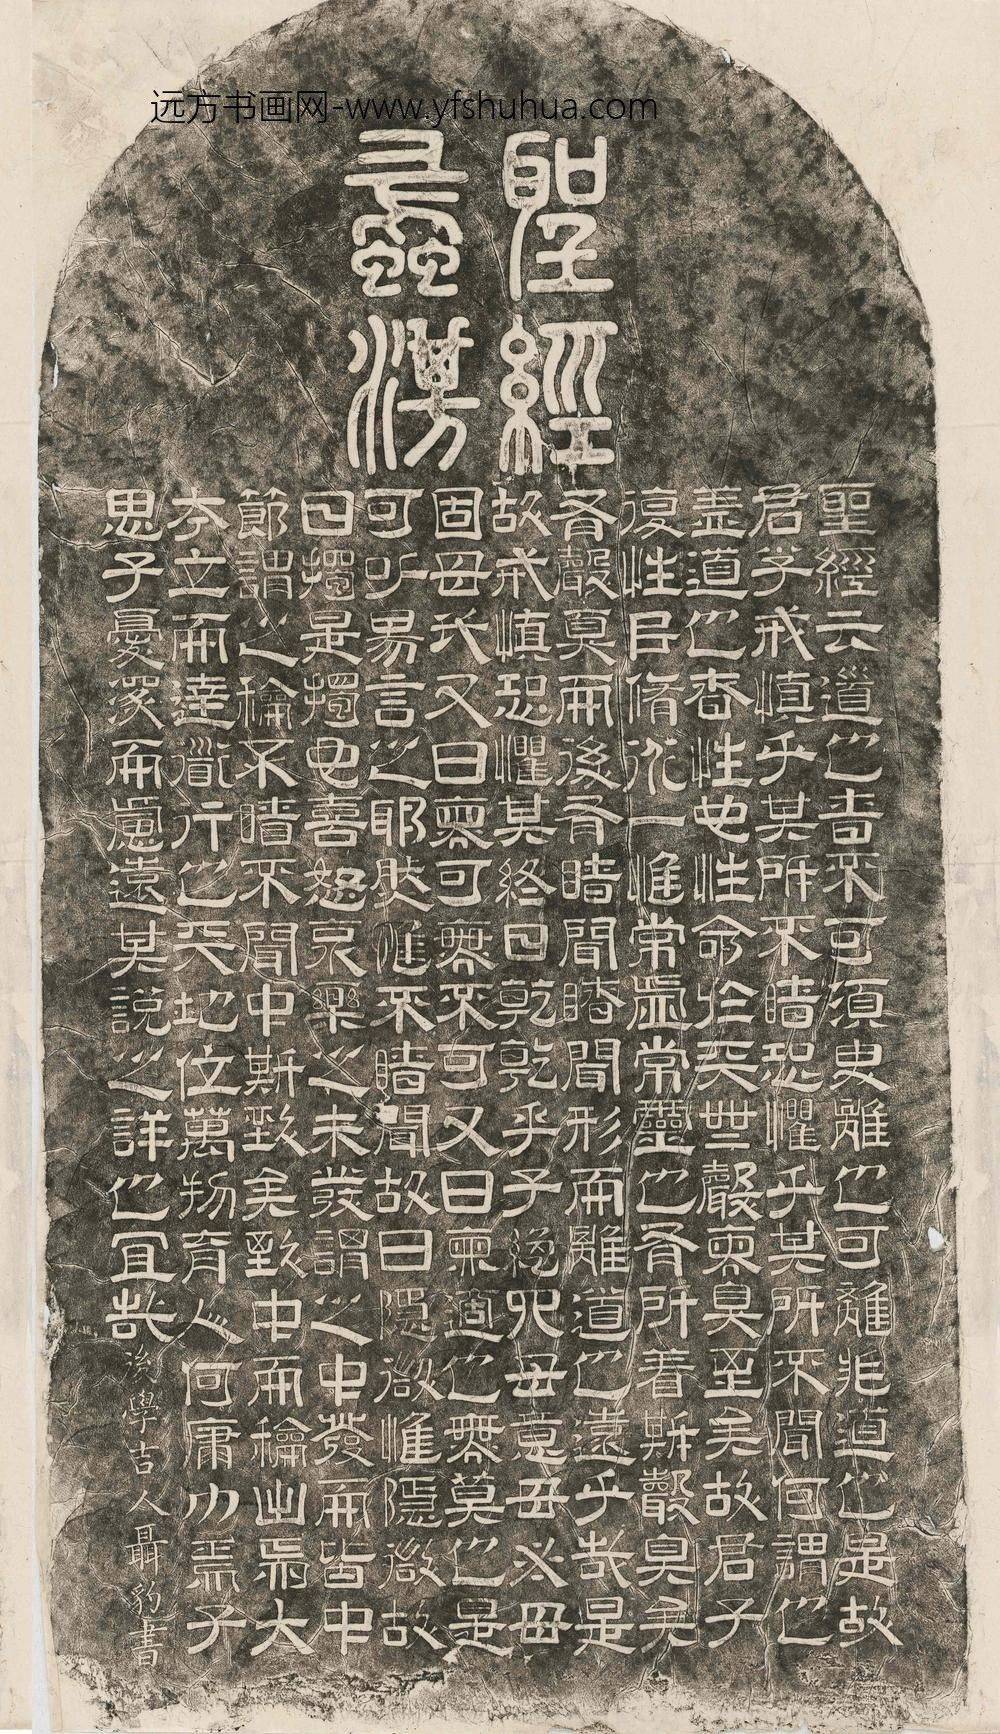 远方书画网-www.yfshuhua.com
聖經
蠡
聖經云道也者不可須臾離也可離非道也是故
君子戒慎乎其所不睹恐懼乎其所不聞何謂也
蓋道也者性也性命於天無聲無臭至矣故君子
復性以脩一惟常虛常靈也有所著斯聲臭矣
有聲臭而後有睹聞睹聞形而離道也遠乎哉是
故戒慎恐懼其終日乾乾乎子絕四毋意毋必毋
固毋我又曰無可無不可又曰無適也無莫也是
可以易言之耶然惟不睹聞故曰隱微惟隱微故
曰獨是獨也喜怒哀樂之未發謂之中發而皆中
節謂之和不睹不聞中斯致矣致中而和出焉大
本立而達道行也天地位萬物育人何庸力焉子
思子憂深而慮遠其說之詳也宜哉後學吉人聶豹書